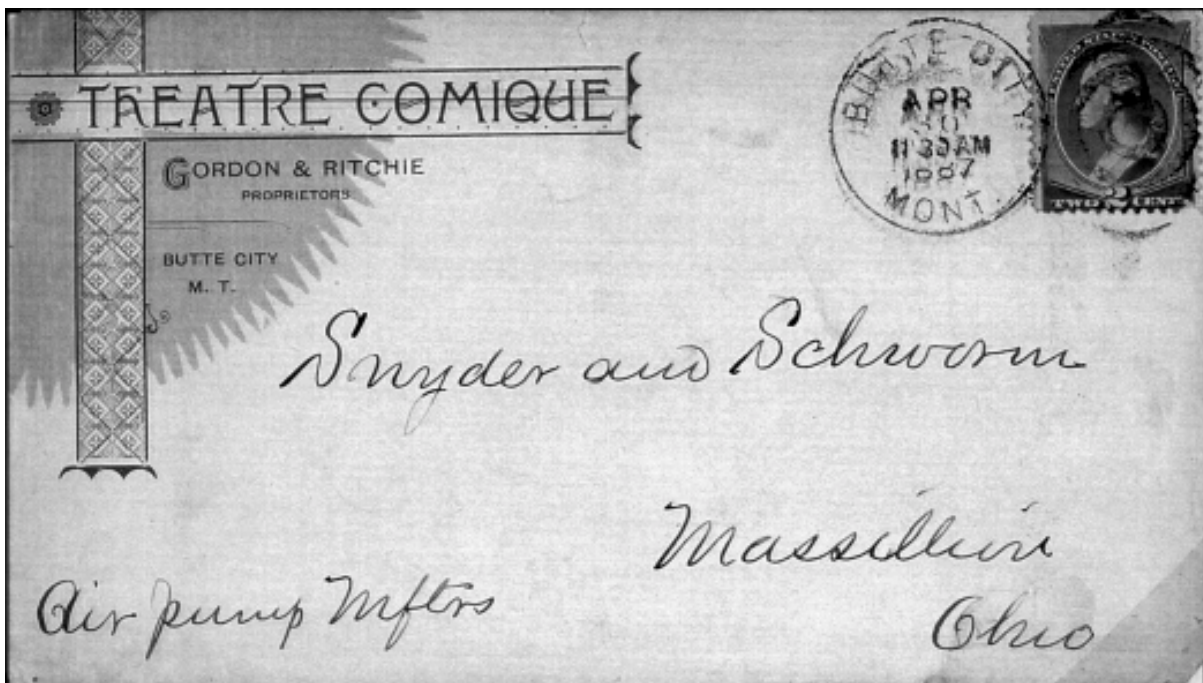 THEATRE COMIQUE
GORDON & RITCHIE
PROPRIETORS
BUTTE CITY
M. T.
BUTTE CITY
APR
11 30 AM
1887
MONT.
TWO 2 CENTS
Snyder and Schworm
Massillion
Ohio
Air pump Mftrs